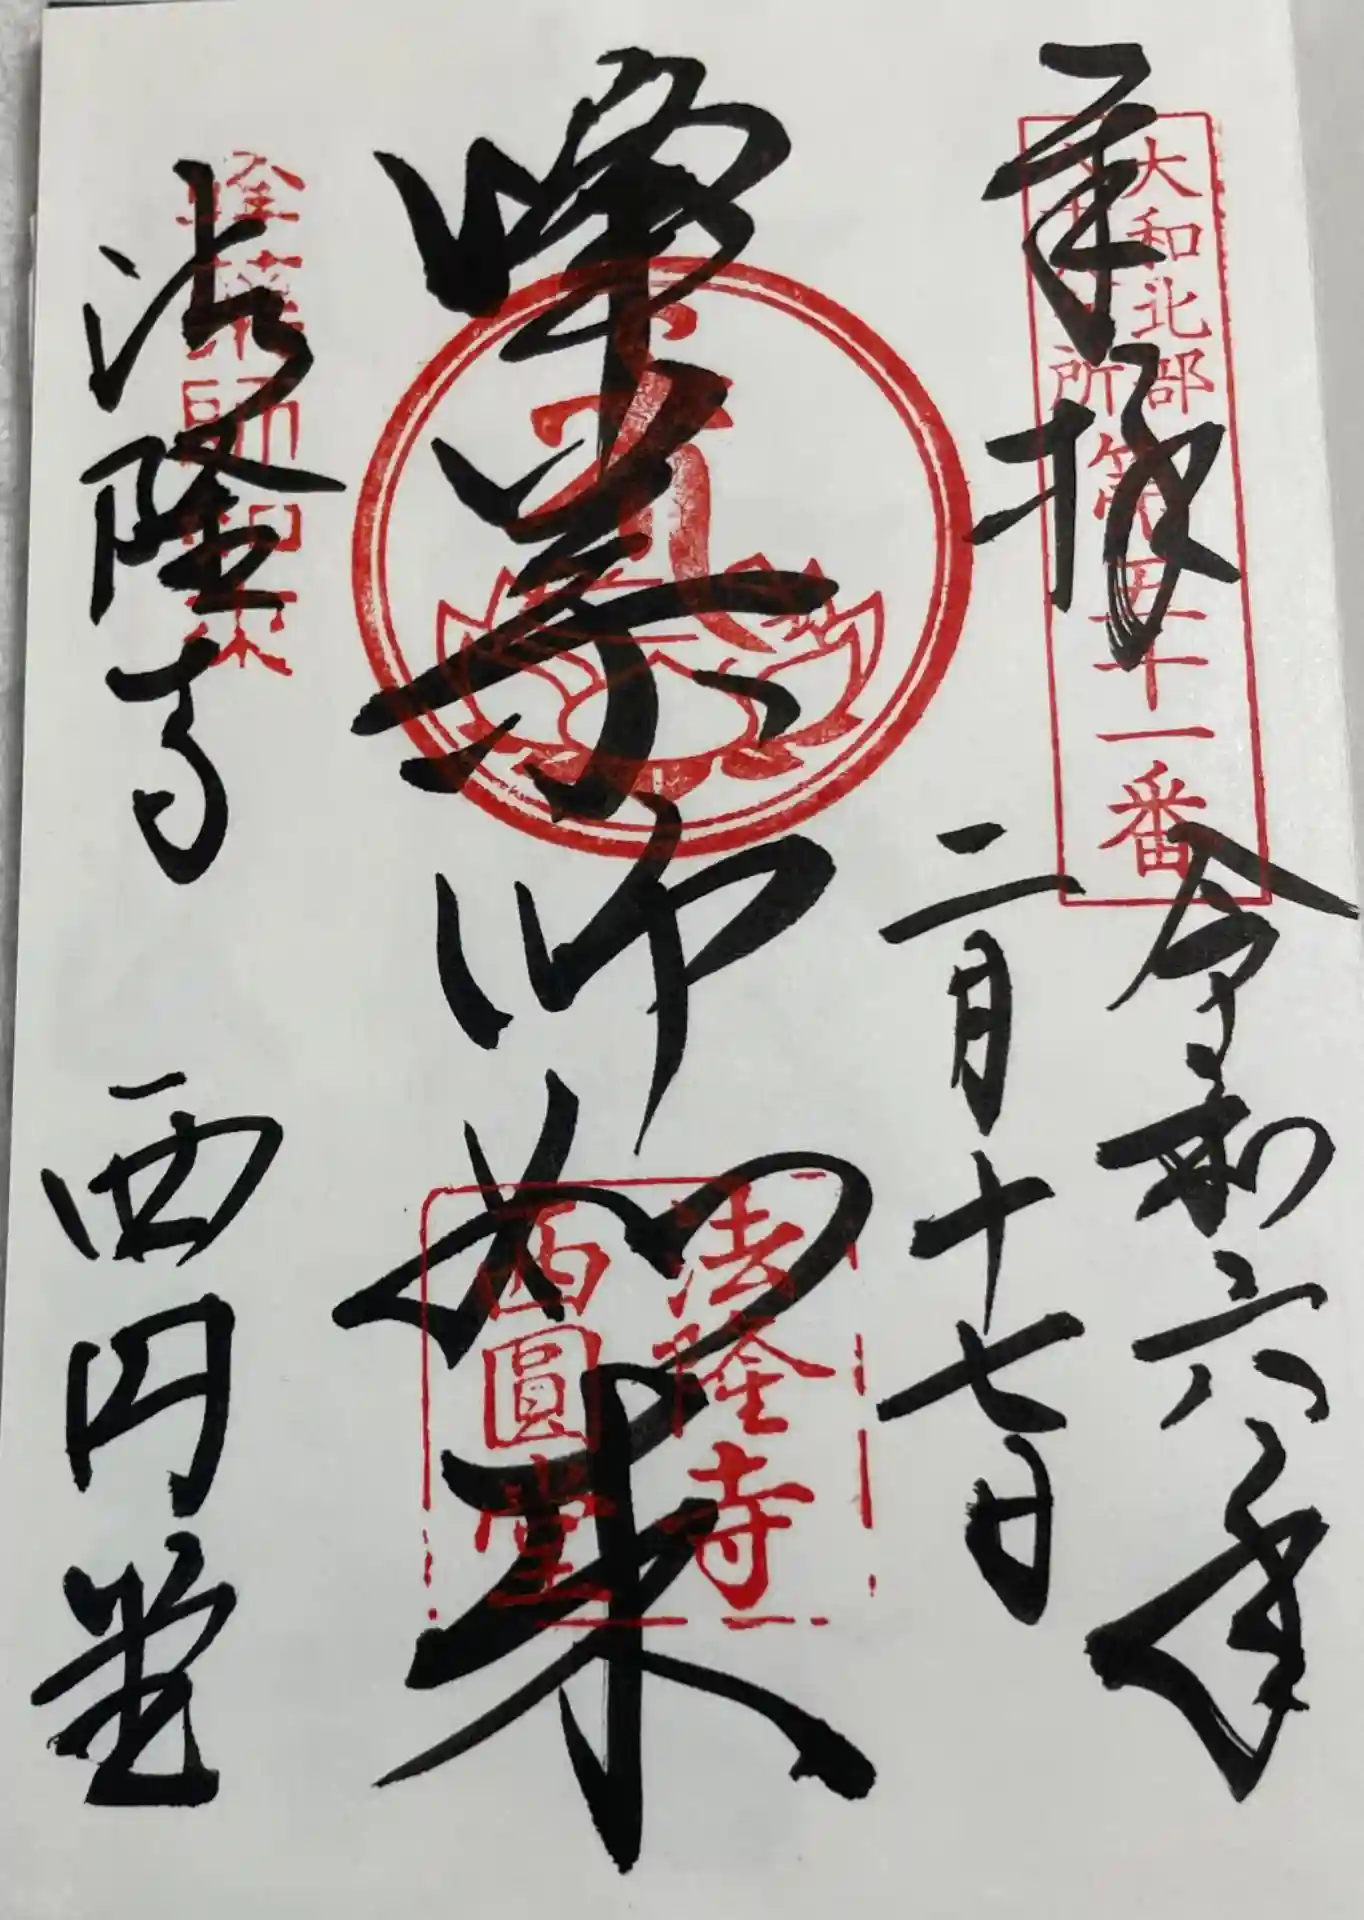 奉拝
大和北部
八十八ヶ所
第五十一番
令和六年
二月十七日
峰薬師如来
法隆寺
西圓堂
法隆寺 西円堂